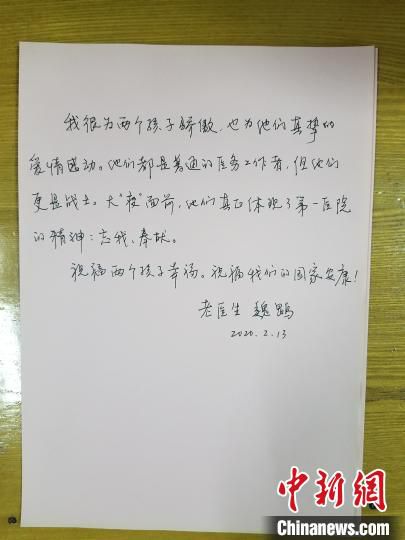 我很为两个孩子骄傲，也为他们真挚的
爱情感动。他们都是普通的医务工作者，但他们
更是战士。大“疫”面前，他们真正体现了第一医院
的精神：忘我、奉献。
祝福两个孩子幸福。祝福我们的国家安康！
老医生 魏
2020.2.13
中新网
Chinanews.com